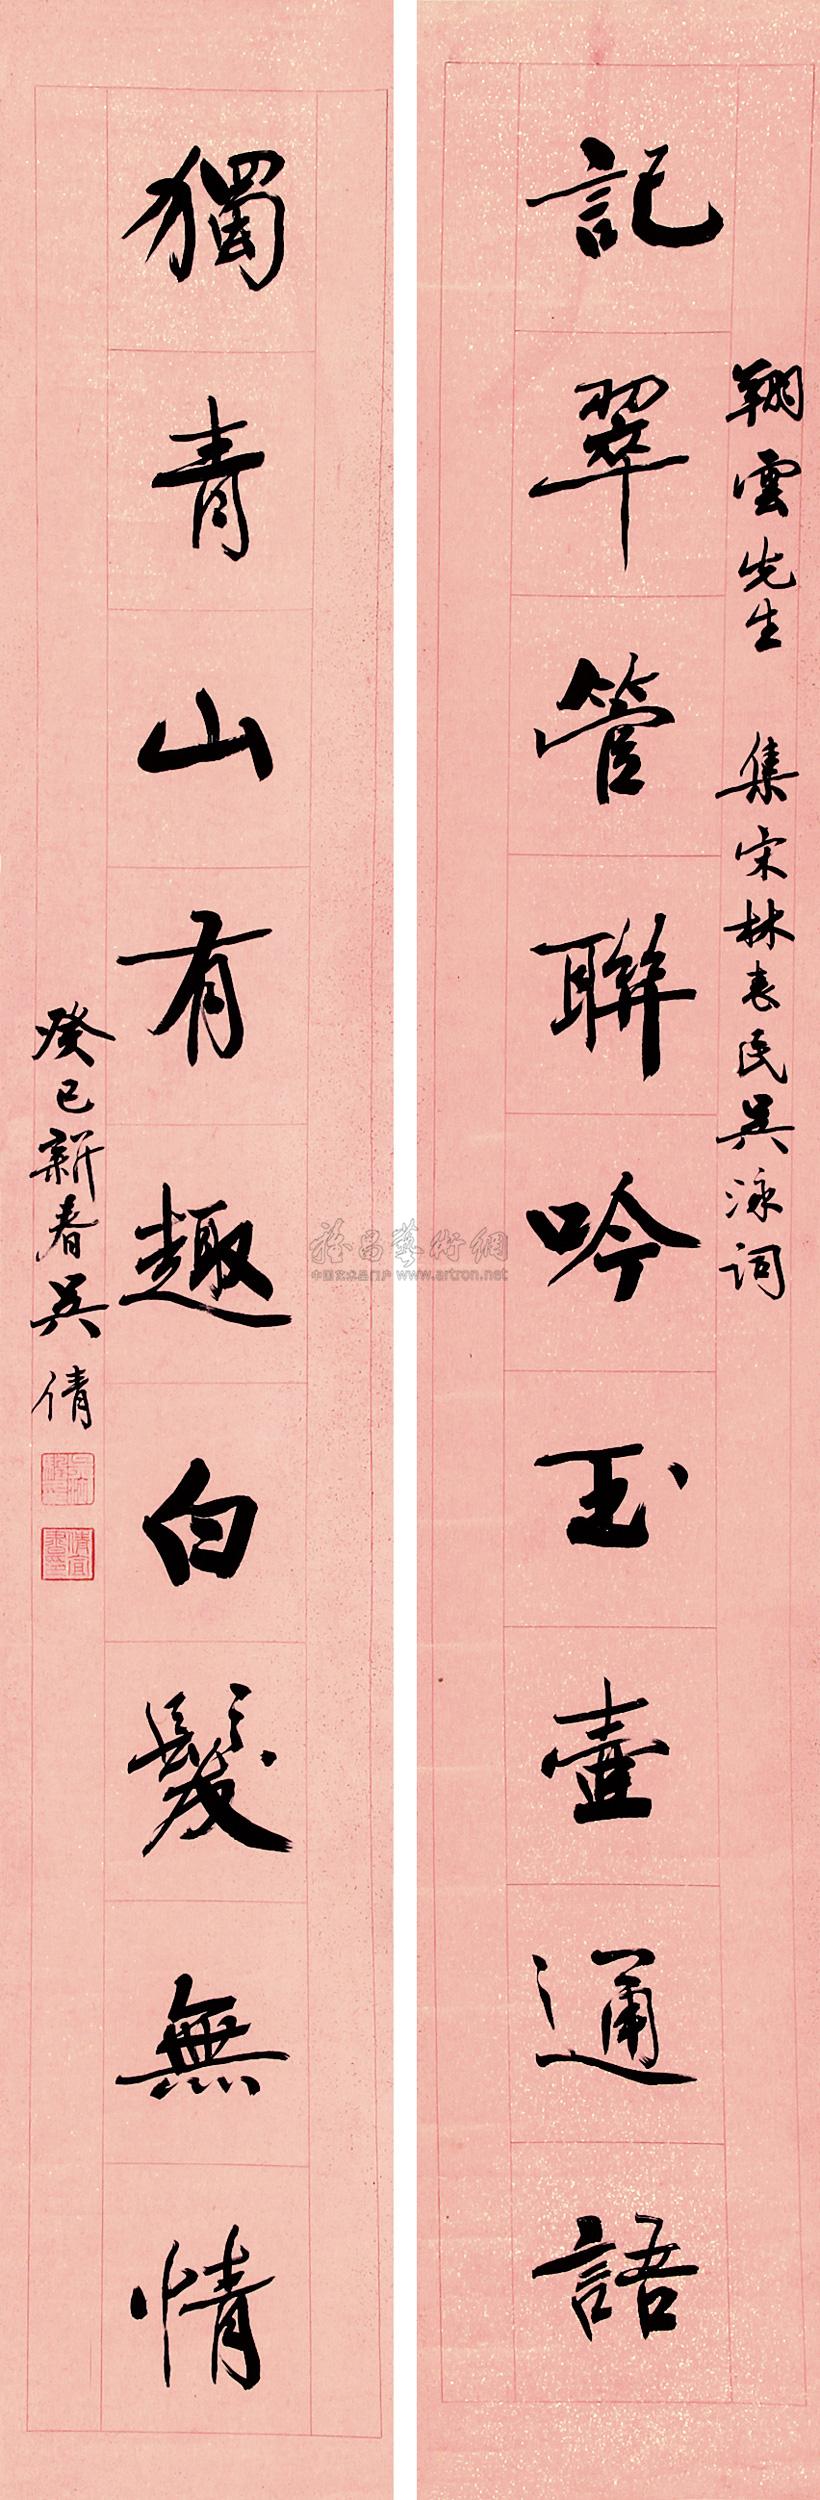 翔雲先生 集宋林表民吳泳詞
記翠管聯吟玉壺通語
獨青山有趣白髮無情
癸巳新春吳倩
雅昌藝術網
中国艺术品门户 www.artron.net